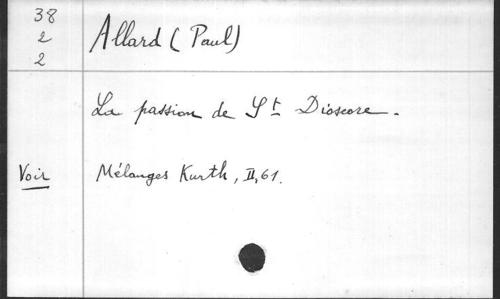 38
2
2
Allard (Paul)
La passion de St Dioscore.
Voir Mélanges Kurth, II, 61.